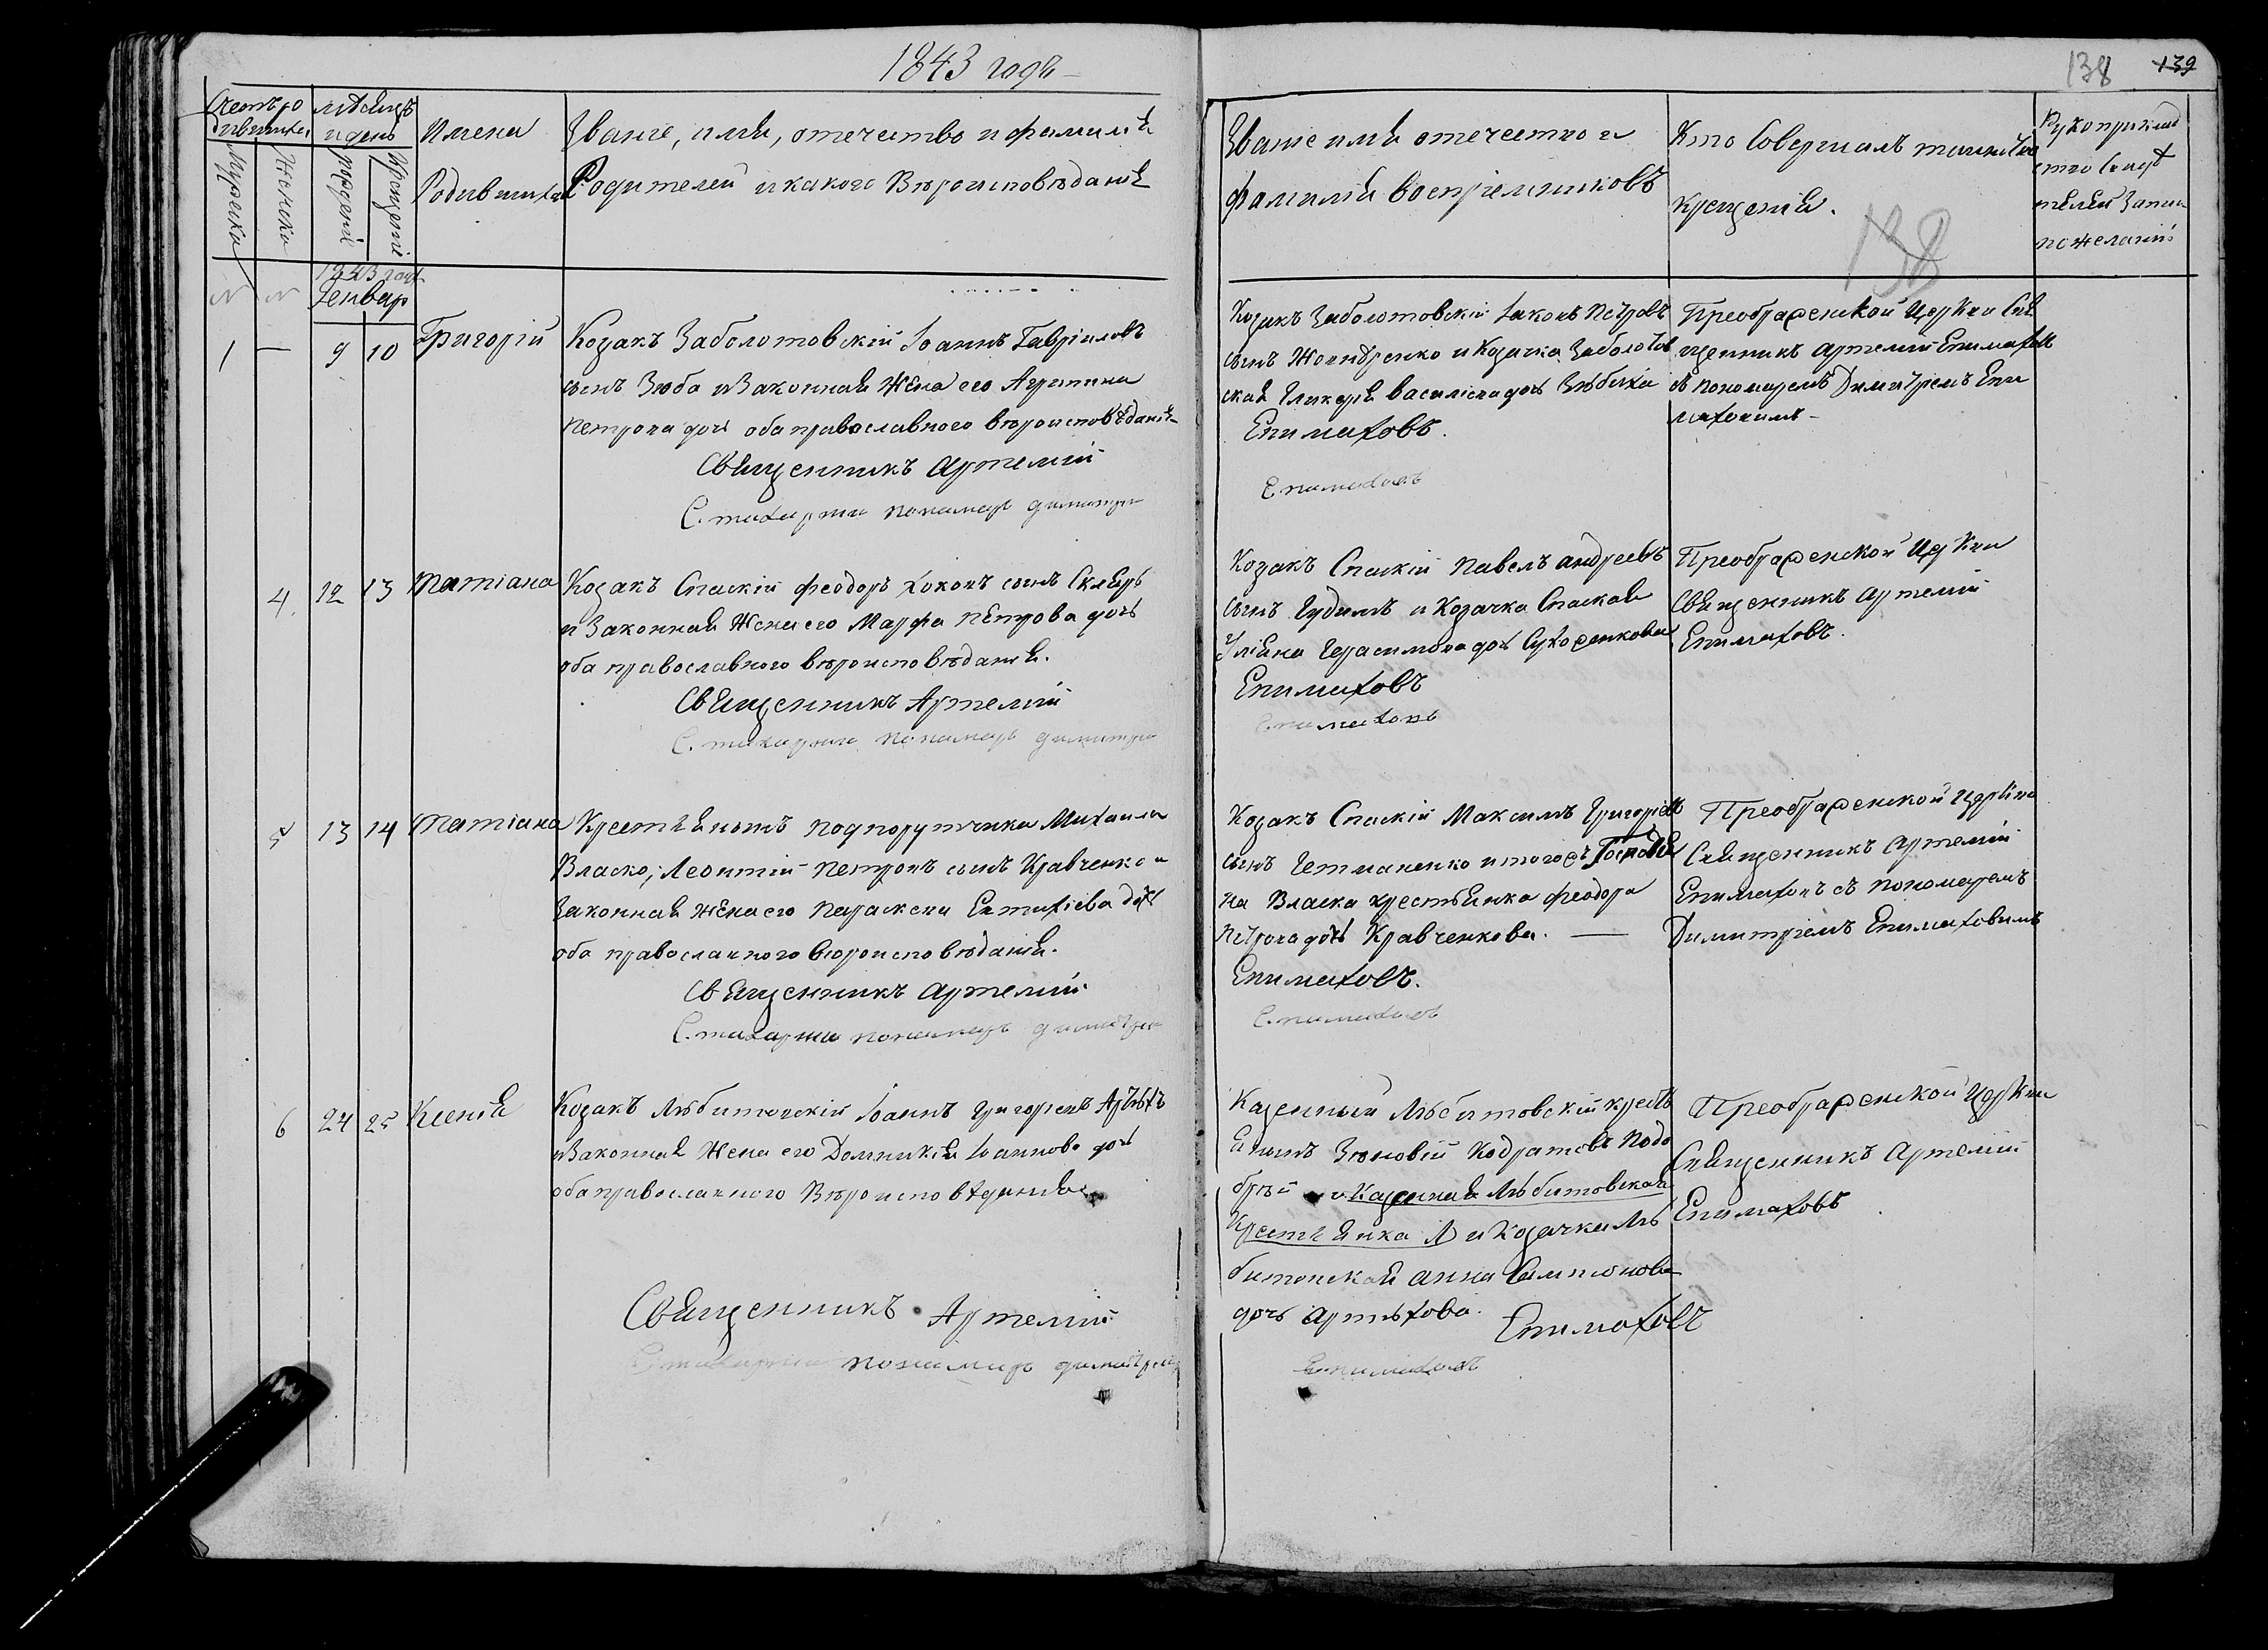 1843 года
138 139
Счетъ ро
дившихся
мѣсяцъ
и день
Мужска
Женска
рожденiя
крещенiя
Имена
Родившихся
Званiе, имя, отечество и фамилiя
Родителей и какого Вѣроисповѣданiя
Званiе имя отечество и
фамилiя воспрiемниковъ
Кто Совершалъ таинство
крещенiя.
Рукоприклад
ство
телей Записи
по желанiю
138
1843 года
Генвар
1 — 9 10 Григорiй
Козакъ Заболотовскiй Iоаннъ Гаврiиловъ
сынъ Зюба и Законная Жена его Агрипина
Петрова дочь оба православного вѣроисповѣданiя
Священникъ Артемiй
Стихарни пономарь димитрiй
Козакъ Заболотовскiй Iаковъ Петровъ
сынъ и Козачка Заболотов
ская Гликерiя Василiева дочь
Епимаховъ.
Епимаховъ
Преображенской Церкви Свя
щенникъ Артемiй Епимаховъ
съ пономаремъ Димитрiемъ Епи
маховимъ
4 12 13 Татiана
Козакъ Спаскiй Феодоръ сынъ Скляръ
и Законная Жена его Марфа Петрова дочь
оба православного вѣроисповѣданiя.
Священникъ Артемiй
Стихарни пономарь димитрiй
Козакъ Спаскiй Павелъ Андреевъ
сынъ Гудимъ и Козачка Спаская
Улiяна Герасимова дочь
Епимаховъ
Епимаховъ
Преображенской Церкви
Священникъ Артемiй
Епимаховъ.
5 13 14 Татiана
Крестьянинъ подпоручика Михаила
Власко, Леонтiй Петровъ сынъ Кравченко и
Законная жена его Параскева Евтихiева дочь
оба православного вѣроисповѣданiя.
Священникъ Артемiй
Стихарни пономарь димитрiй
Козакъ Спаскiй Максимъ Григорiевъ
сынъ Гетманенко и того жъ Господи
на Власка крестьянка Феодора
Петрова дочь Кравченкова. —
Епимаховъ.
Епимаховъ
Преображенской Церкви
Священникъ Артемiй
Епимаховъ съ пономаремъ
Димитрiемъ Епимаховимъ
6 24 25 Ксенiя
Козакъ Любитовскiй Iоаннъ Григорiевъ Артюхъ
и Законная Жена его Домникiя Iоаннова дочь
оба православного Вѣроисповѣданiя
Священникъ Артемiй
Стихарни пономарь димитрiй
Казенный Любитовскiй кресть
янинъ Зѣновiй Кодратовъ Подо
брѣй и Казенная Любитовская
Крестьянка Л и Козачка Лю
битовская Анна Сампсонова
дочь Артюхова.
Епимаховъ
Епимаховъ
Преображенской Церкви
Священникъ Артемiй
Епимаховъ